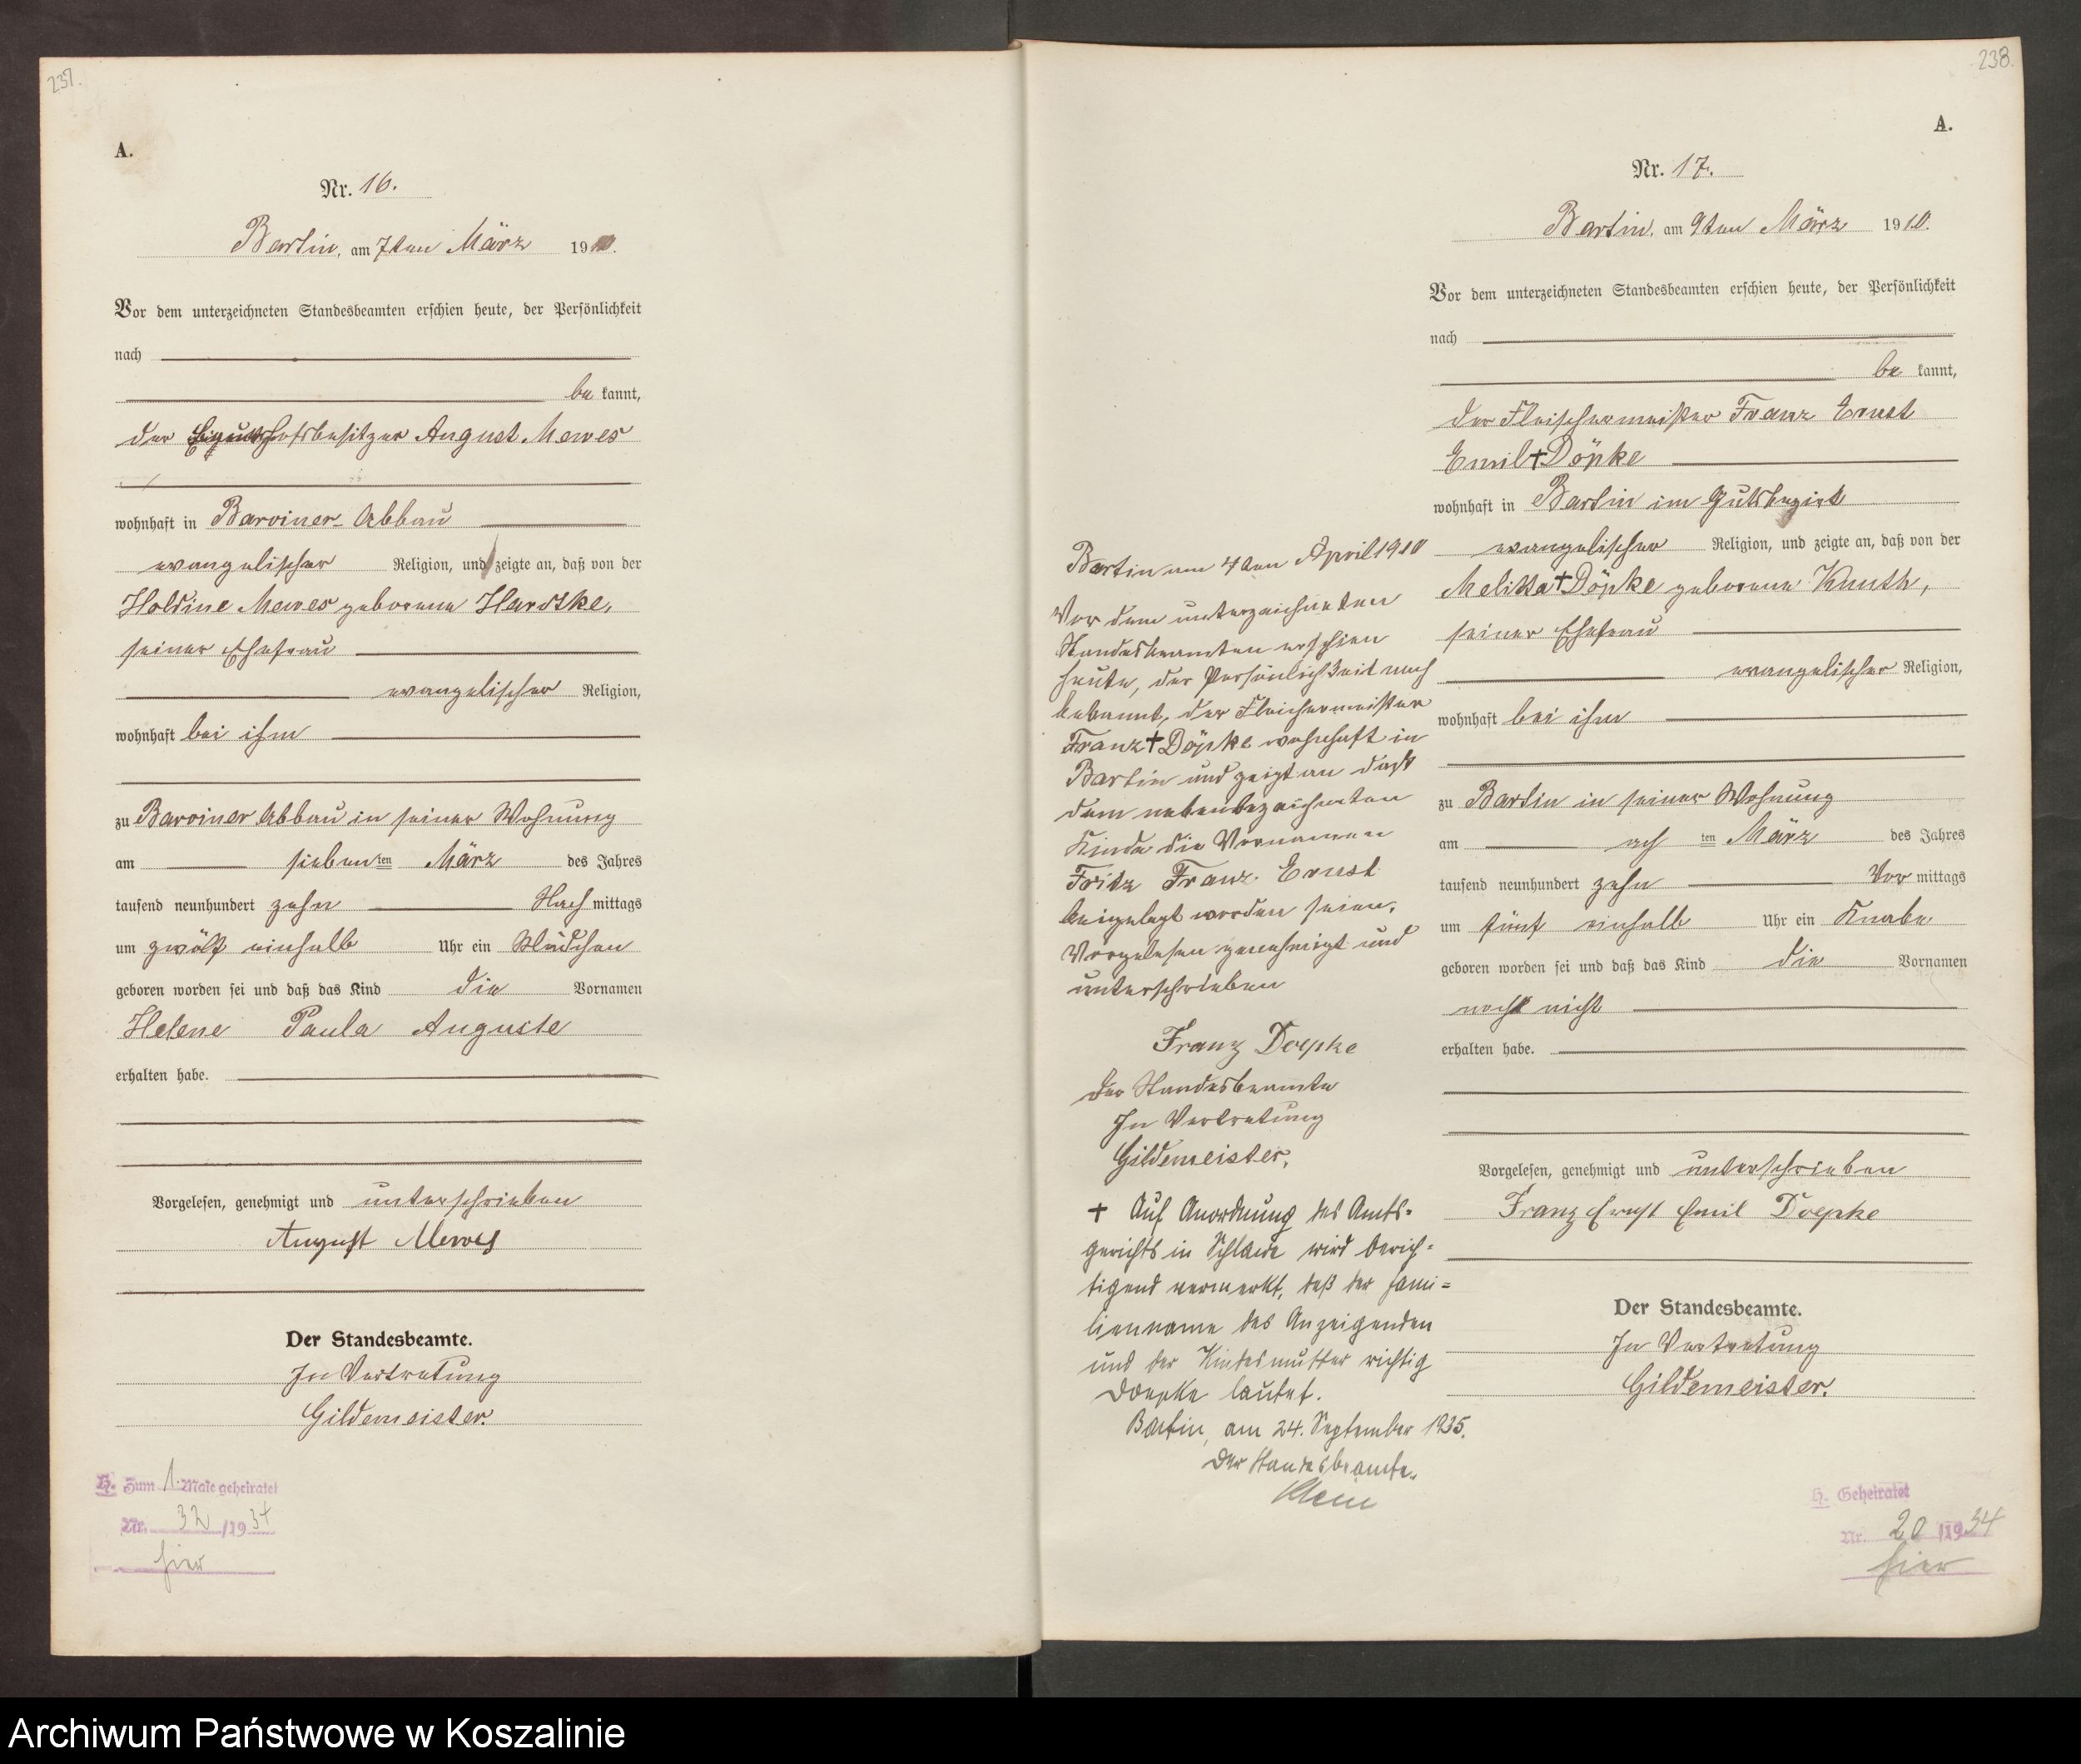 237.
A.
Nr. 16.
Bartin, am 7ten März 1910.
Vor dem unterzeichneten Standesbeamten erschien heute, der Persönlichkeit
nach
be kannt,
der August Mewes
wohnhaft in Barviner-Abbau
evangelischer Religion, und zeigte an, daß von der
Holdine Mewes geborene Hardtke,
seiner Ehefrau
evangelischer Religion,
wohnhaft bei ihm
zu Barviner Abbau in seiner Wohnung
am siebenten März des Jahres
tausend neunhundert zehn Nach mittags
um zwölf einhalb Uhr ein Mädchen
geboren worden sei und daß das Kind die Vornamen
Helene Paula Auguste
erhalten habe.
Vorgelesen, genehmigt und unterschrieben
August Mewes
Der Standesbeamte.
In Vertretung
Gildemeister.
H. Zum 1. Male geheiratet
Nr. 32 /1934
hier
238.
A.
Nr. 17.
Bartin, am 9ten März 1910.
Vor dem unterzeichneten Standesbeamten erschien heute, der Persönlichkeit
nach
be kannt,
der Fleischermeister Franz Ernst
Emil + Döpke
wohnhaft in Bartin im Gutsbezirk
evangelischer Religion, und zeigte an, daß von der
Melitta + Döpke geborene Knuth,
seiner Ehefrau
evangelischer Religion,
wohnhaft bei ihm
zu Bartin in seiner Wohnung
am achten März des Jahres
tausend neunhundert zehn Vor mittags
um fünf einhalb Uhr ein Knabe
geboren worden sei und daß das Kind die Vornamen
noch nicht
erhalten habe.
Vorgelesen, genehmigt und unterschrieben
Franz Ernst Emil Doepke
Der Standesbeamte.
In Vertretung
Gildemeister.
Bartin am 4ten April 1910
Vor dem unterzeichneten
Standesbeamten erschien
heute, der Persönlichkeit nach
bekannt, der Fleischermeister
Franz + Döpke wohnhaft in
Bartin und zeigt an daß
dem nebenbezeichneten
Kinde die Vornamen
Fritz Franz Ernst
beigelegt worden seien.
Vorgelesen genehmigt und
unterschrieben
Franz Doepke
Der Standesbeamte
In Vertretung
Gildemeister.
+ Auf Anordnung des Amts-
gerichts in Schlawe wird berich-
tigend vermerkt, daß der Fami-
lienname des Anzeigenden
und der Kindesmutter richtig
Doepke lautet.
Bartin, am 24. September 1935.
Der Standesbeamte.
Klein
H. Geheiratet
Nr. 20 /1934
hier
Archiwum Państwowe w Koszalinie